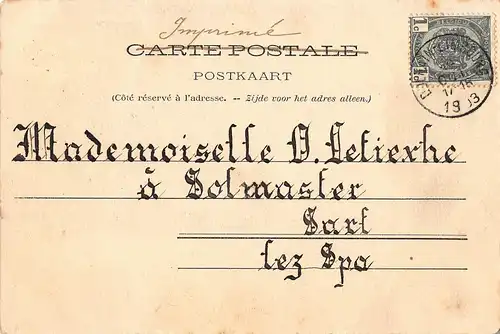 Imprimé
CARTE POSTALE
POSTKAART
(Côté réservé à l'adresse. -- Zijde voor het adres alleen.)
1c
1c
19 03
Mademoiselle D. Letiexhe
à Solmaster
Sart
lez Spa